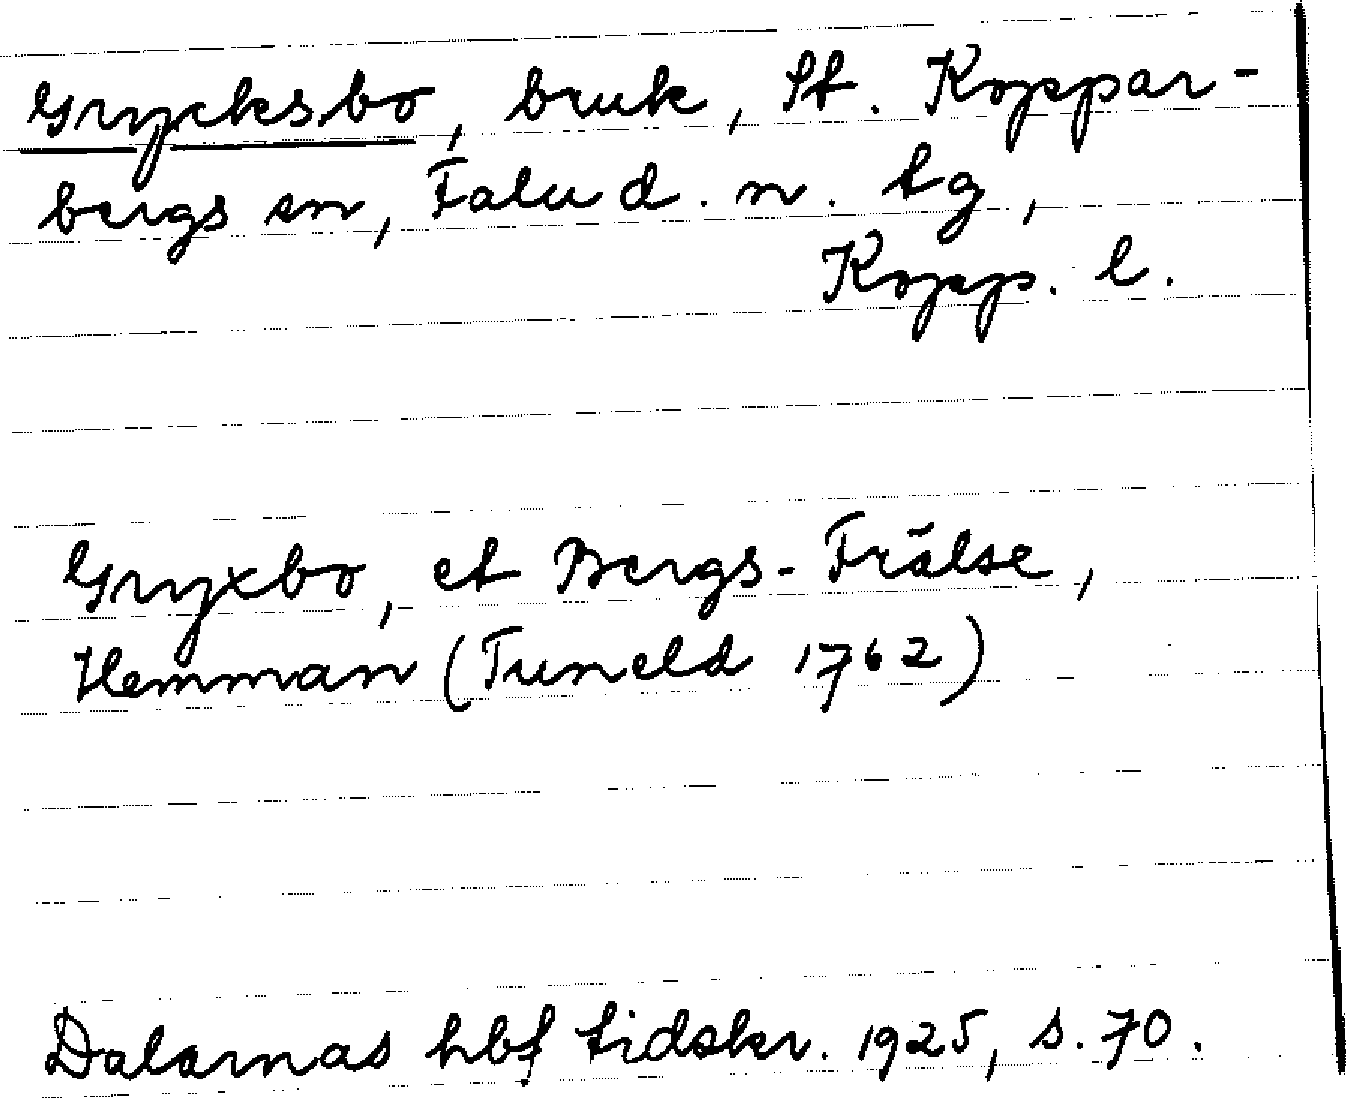 Grycksbo, bruk, St. Koppar-
bergs sn, Falu d. n. tg,
Kopp. l.
Gryxbo, et Bergs-Frälse,
Hemman (Tuneld 1762)
Dalarnas hbf tidskr. 1925, s. 70.